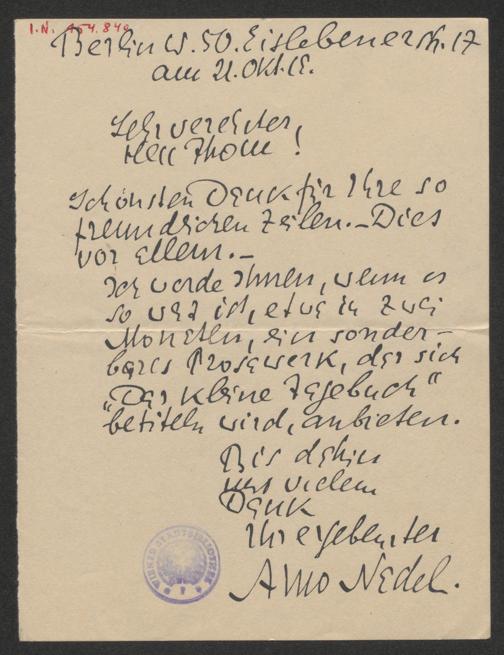 I.N. 154.840
Berlin W. 50. Eislebenerstr. 17
am 21. Okt. 15.
Sehr verehrter,
Herr Thom !
Schönsten Dank für Ihre so
freundlichen Zeilen. – Dies
vor allem. –
Ich werde Ihnen, wenn es
so weit ist, etwa in zwei
Monaten, ein sonder-
bares Prosawerk, das sich
„Das kleine Tagebuch“
betiteln wird, anbieten.
Bis dahin
mit vielem
Dank
Ihr ergebenster
Arno Nadel.
WIENER STADTBIBLIOTHEK